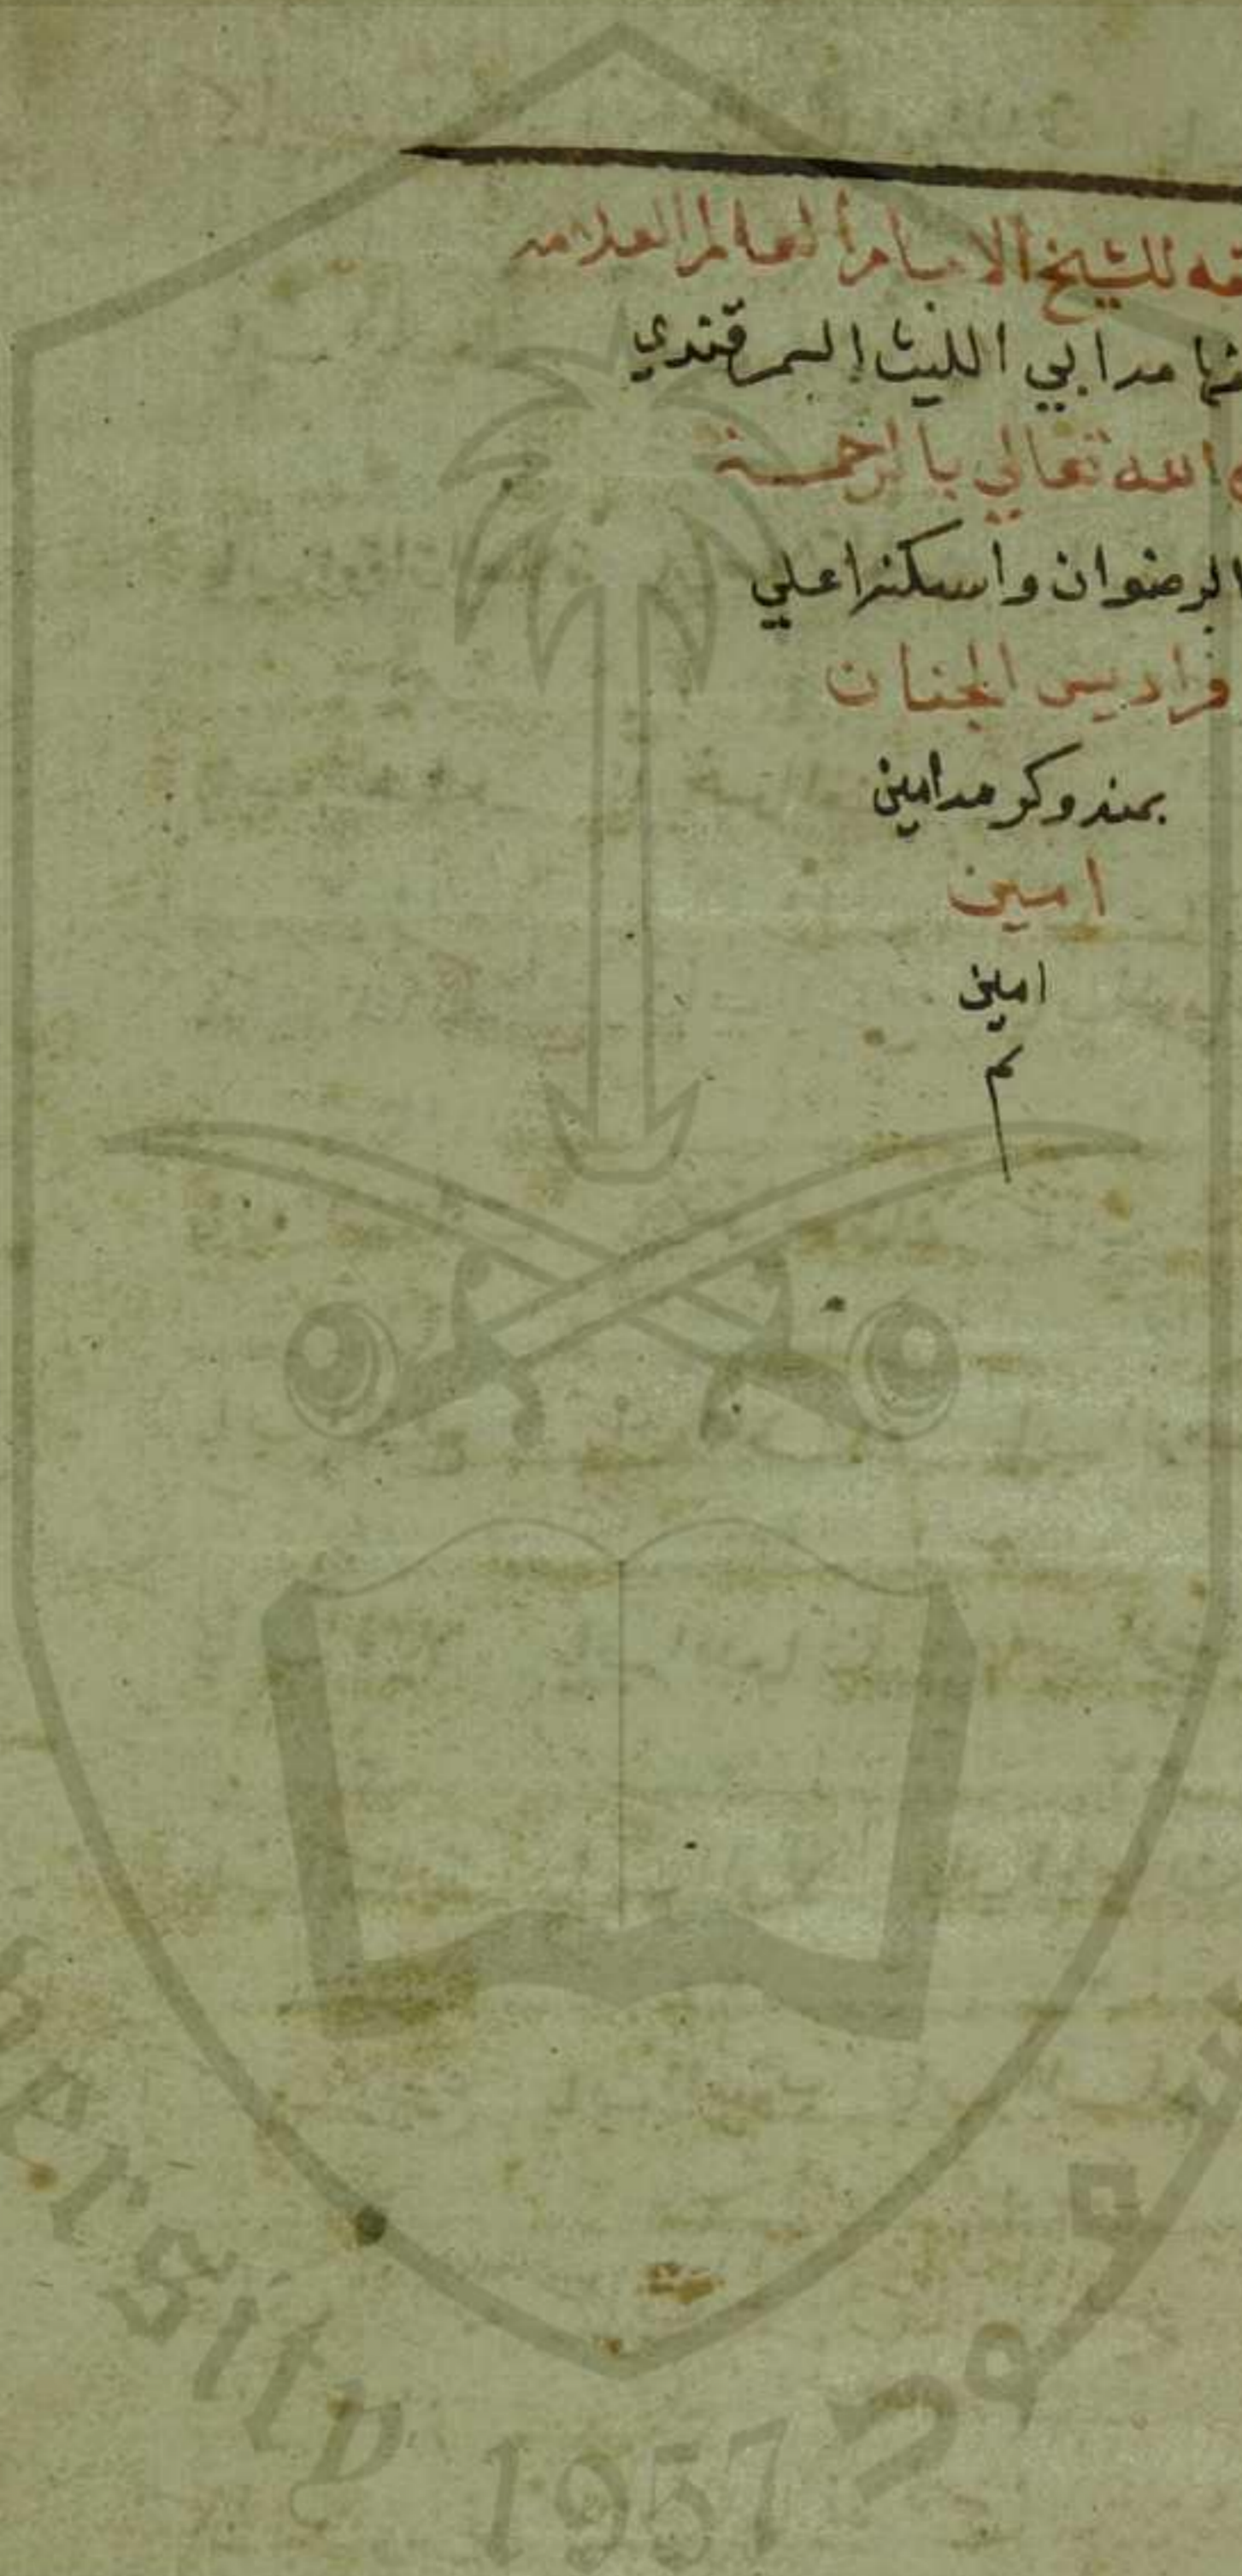 للشيخ الامام العالم العلامه
ابي الليث السمرقندي
الله تعالي بالرحمة
الرضوان واسكنه اعلي
فراديس الجنان
بمنه وكرمه امين
امين
امين
م
ersity 1957